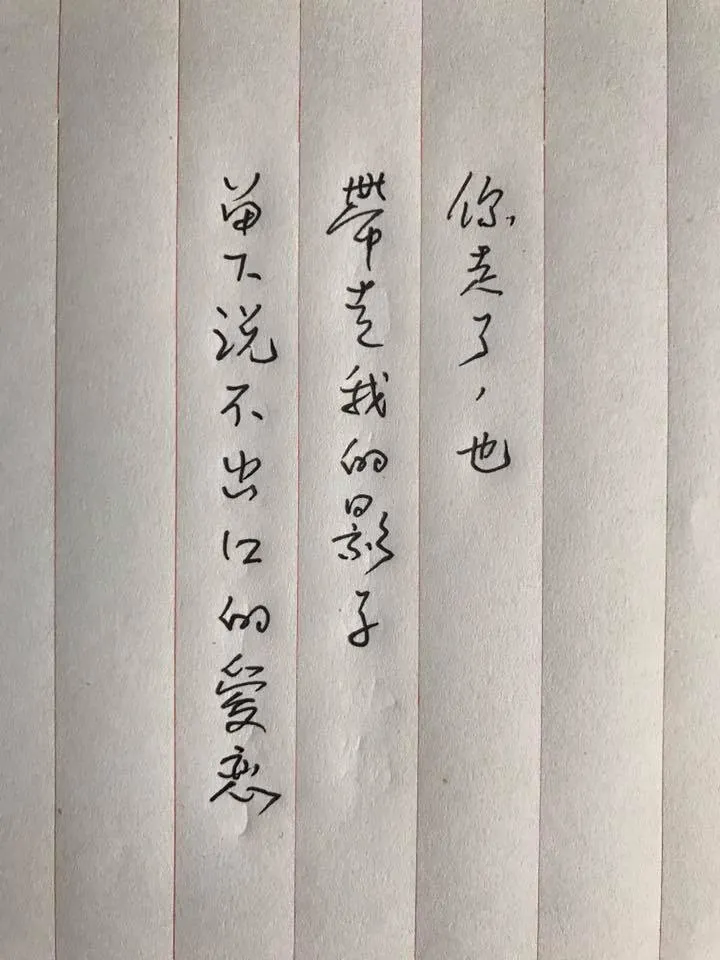 你走了,也
帶走我的影子
留下说不出口的愛恋